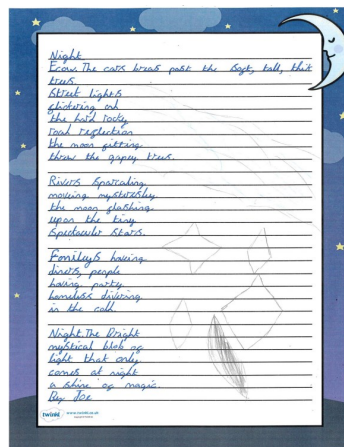 Night
Ecow. The cars breas past the Bogt, tall, thit
trees.
Street lights
glistering on
the hard rocky
road reflection
the moon gitting
threw the gapey trees.
Rivers Sparcaling
moveing mysteresley
the moon glashing
upon the tiny
Spectaculer Stars.
Famileys haveing
diners, people
having party
homeless divering
in the cold.
Night. The Bright
mystical blob og
light that only
comes at night
a shine og magic.
By Joe
twinkl
www.twinkl.co.uk